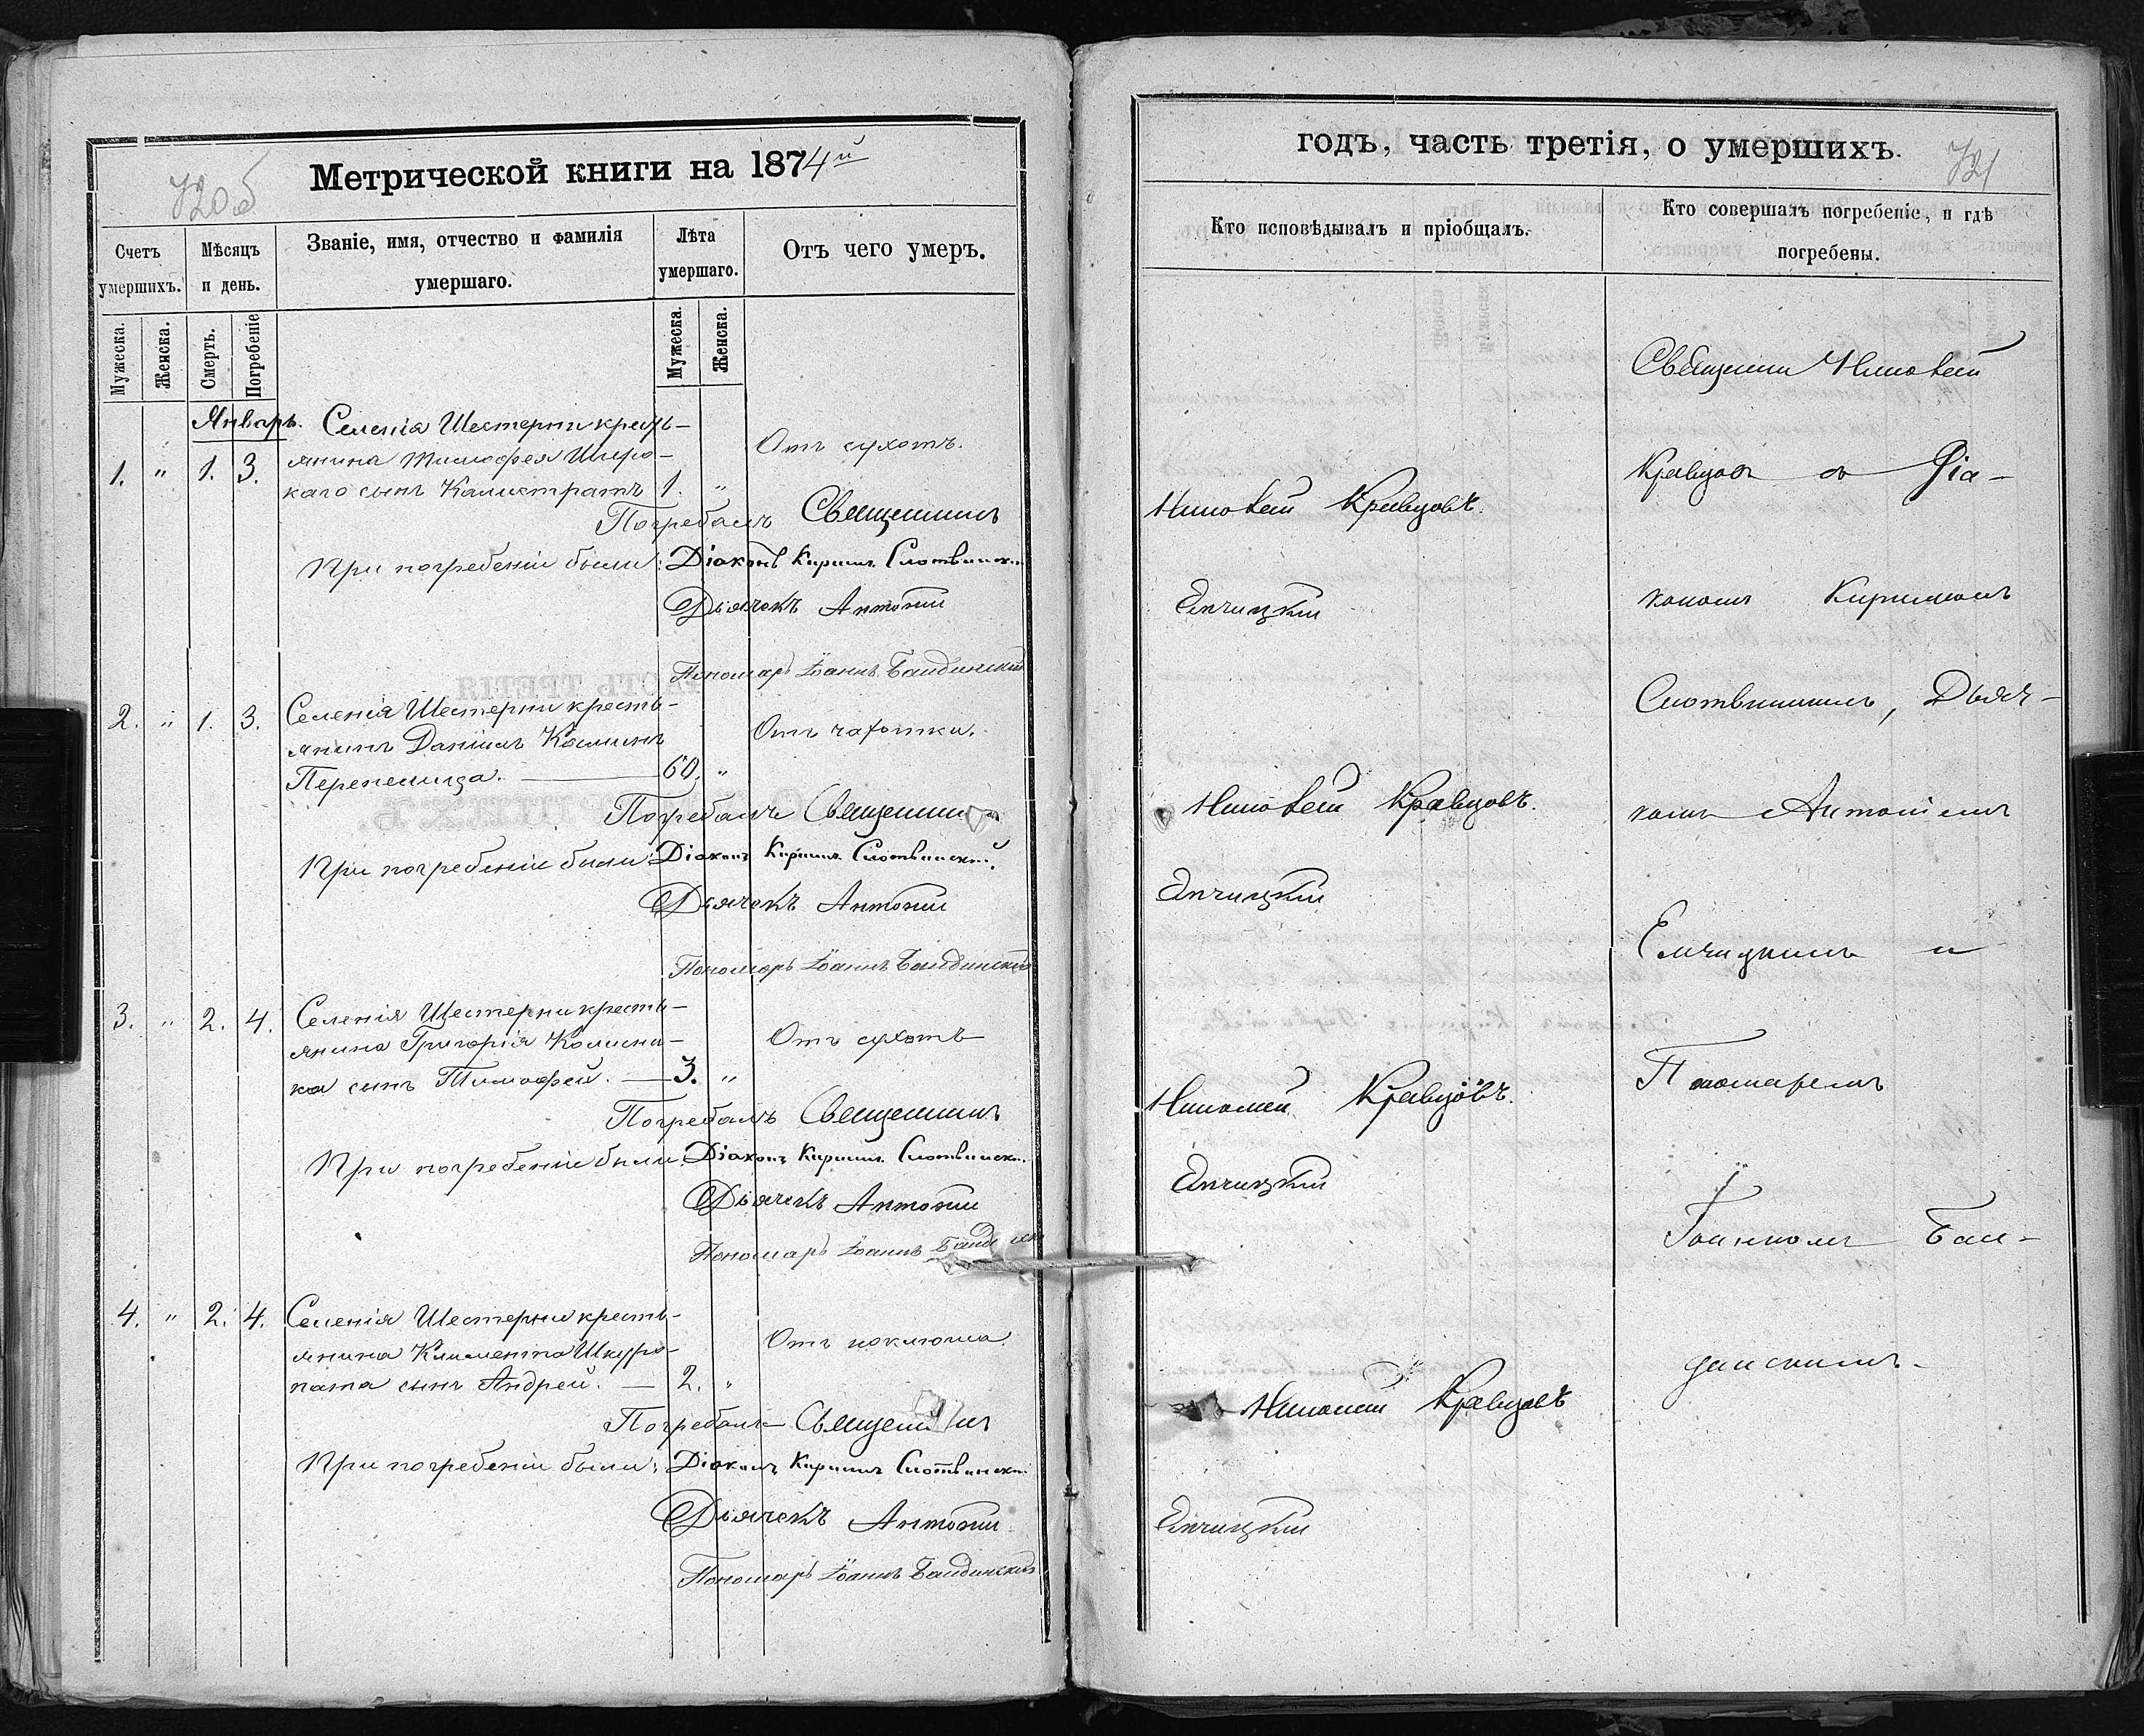 Метрической книги на 1874й
720об
Счетъ умершихъ.
Мѣсяцъ и день.
Званіе, имя, отчество и фамилія умершаго.
Лѣта умершаго.
Отъ чего умеръ.
Мужеска.
Женска.
Смерть.
Погребеніе
Мужеска.
Женска.
Январь.
Селенія Шестерни кресть-
1. " 1. 3. янина Тимофея Широ-
каго сынъ Калистратъ 1. "
Отъ сухотъ.
Погребалъ Священникъ
При погребеніи были: Діаконъ Кириллъ Слотвинскій
Дьячекъ Антоній
Пономарь Іоаннъ Бандинскій
2. " 1. 3. Селенія Шестерни кресть-
янинъ Даніилъ Косминъ
Перепелица. 60. "
Отъ чахотки.
Погребалъ Священникъ
При погребеніи были: Діаконъ Кириллъ Слотвинскій.
Дьячекъ Антоній
Пономарь Іоаннъ Бандинскій
3. " 2. 4. Селенія Шестерни кресть-
янина Григорія
ка сынъ Тимофей. 3. "
Отъ сухотъ
Погребалъ Священникъ
При погребеніи были: Діаконъ Кириллъ Слотвинскій
Дьячекъ Антоній
Пономарь Іоаннъ
4. " 2. 4. Селенія Шестерни кресть-
янина Климента Шкуро-
пата сынъ Андрей. 2. "
Отъ коклюша
Погребалъ Священникъ
При погребеніи были: Діаконъ Кириллъ Слотвинскій
Дьячекъ Антоній
Пономарь Іоаннъ Бандинскій
годъ, часть третія, о умершихъ.
721
Кто исповѣдывалъ и пріобщалъ.
Кто совершалъ погребеніе, и гдѣ погребены.
Кравцовъ.
Кравцовъ.
Кравцовъ.
Кравцовъ
Кравцовъ съ Діа-
кономъ Кирилломъ
Слотвинскимъ, Дьяч-
комъ Антоніемъ
Елчицкимъ и
Пономаремъ
Іоанномъ Бан-
динскимъ.